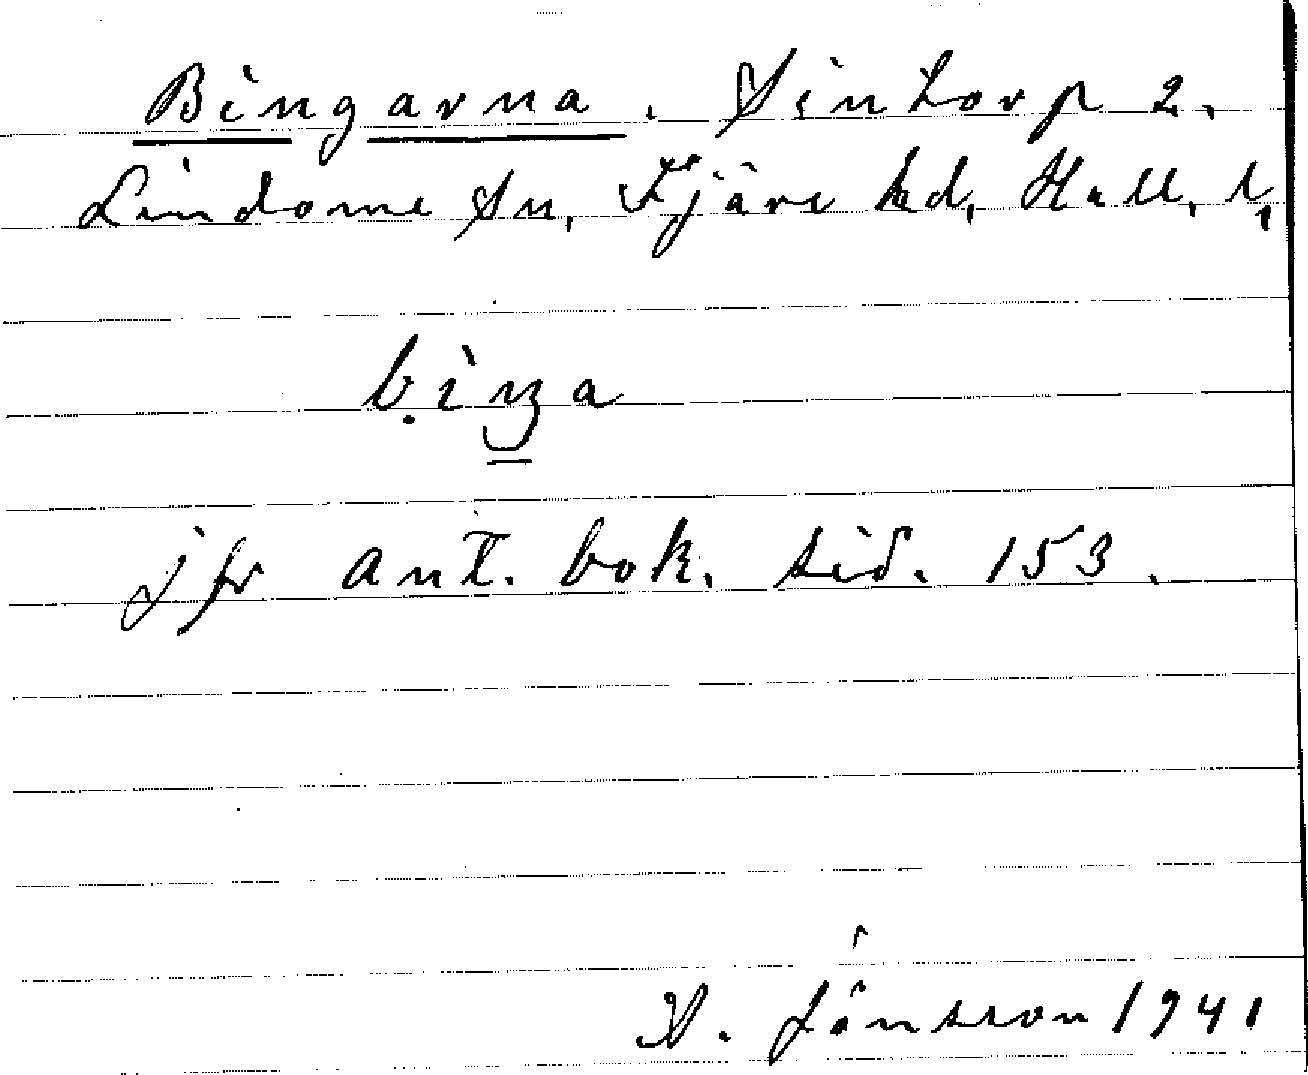 Bingarna. Sintorp 2.
Lindome sn, Fjäre hd, Hall. l,
jfr ant. bok. sid. 153.
Jönsson 1941